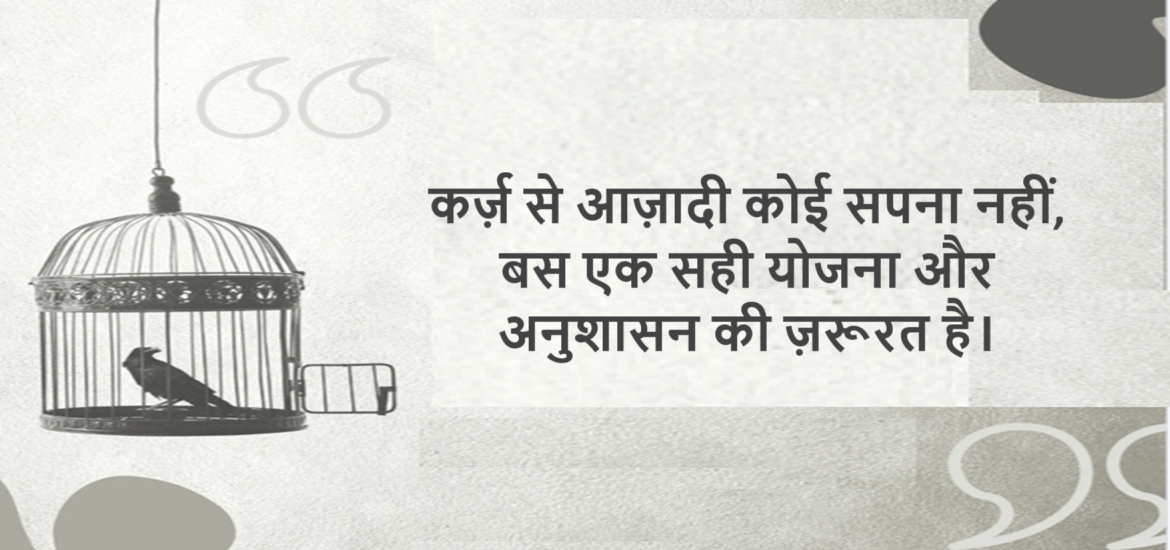 कर्ज़ से आज़ादी कोई सपना नहीं,
बस एक सही योजना और
अनुशासन की ज़रूरत है।